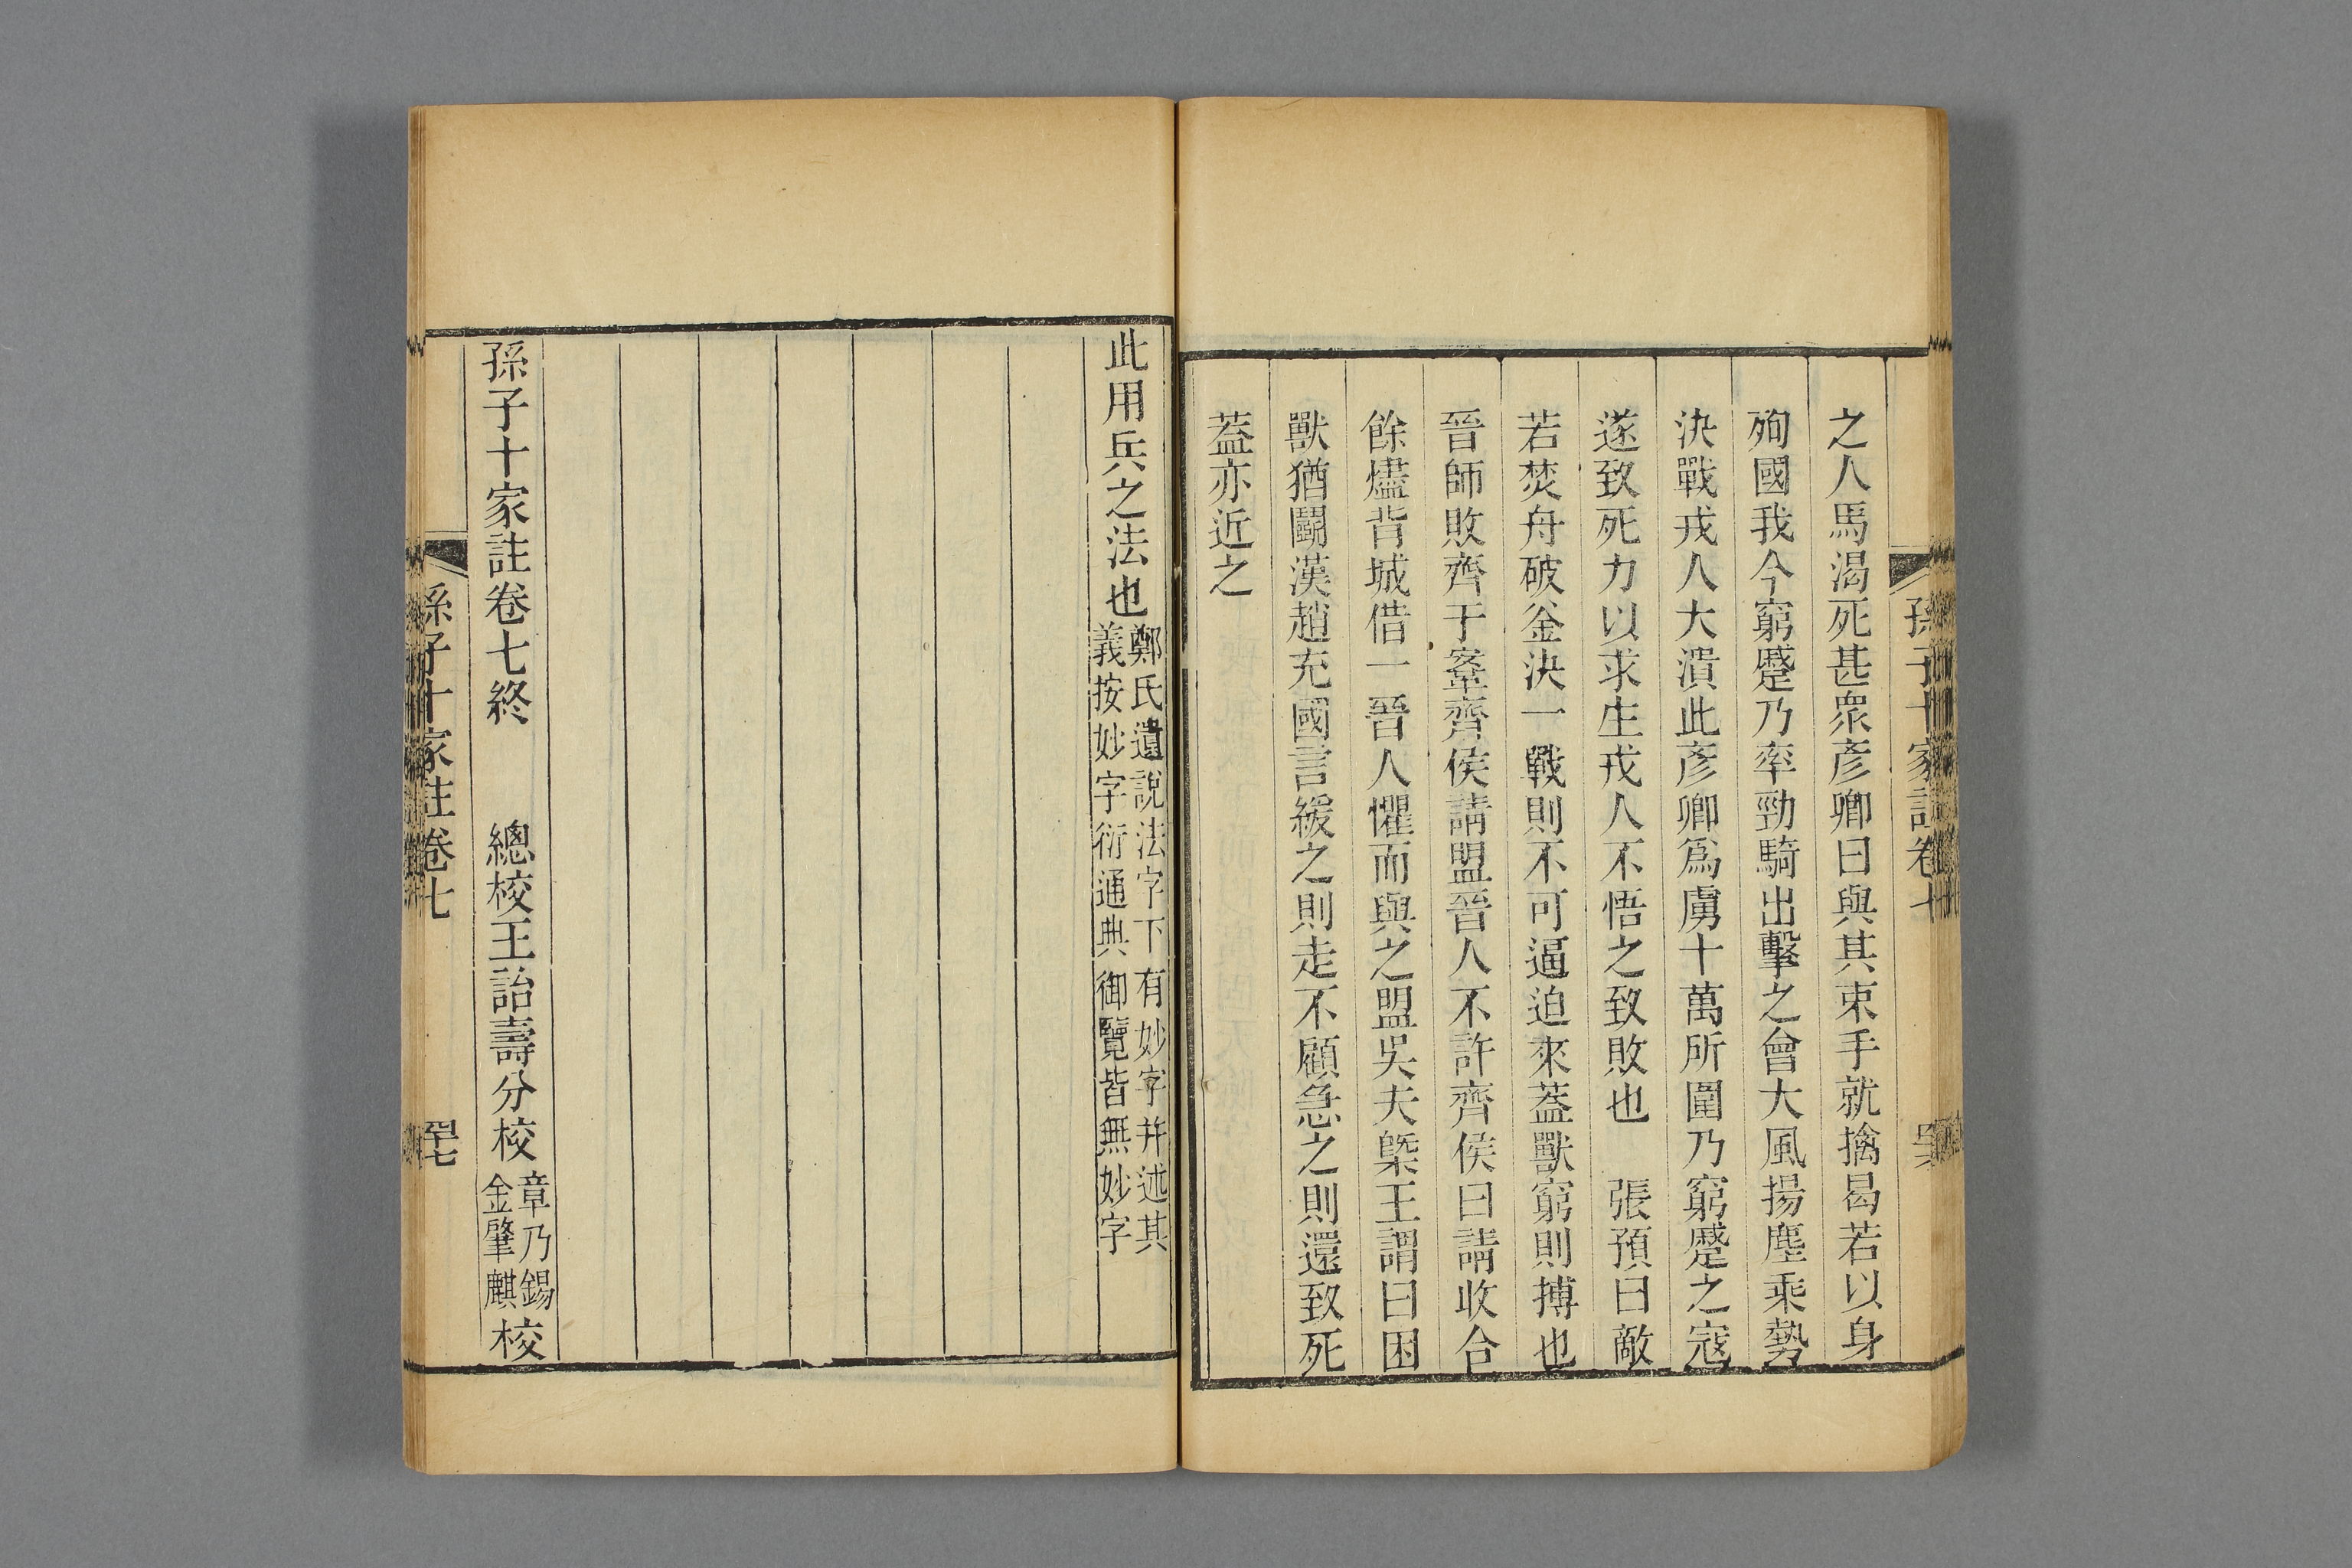 孫子十家註卷七
之人馬渴死甚眾彥卿曰與其束手就擒曷若以身
殉國我今窮蹙乃率勁騎出擊之會大風揚塵乘勢
決戰戎人大潰此彥卿爲虜十萬所圍乃窮蹙之寇
遂致死力以求生戎人不悟之致敗也　張預曰敵
若焚舟破釜決一戰則不可逼迫來葢獸窮則搏也
晉師敗齊于鞌齊侯請盟晉人不許齊侯曰請收合
餘燼背城借一晉人懼而與之盟吳夫槩王謂曰困
獸猶鬬漢趙充國言緩之則走不顧急之則還致死
葢亦近之
此用兵之法也鄭氏遺說法字下有妙字并述其
義按妙字衍通典御覽皆無妙字
孫子十家註卷七終　總校王詒壽分校章乃錫金肇麒校
孫子十家註卷七
四十七